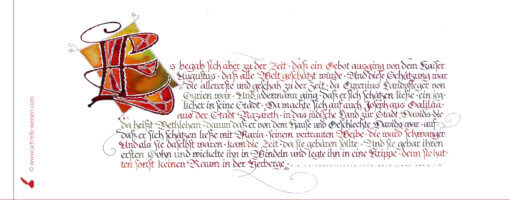 Es begab sich aber zu der Zeit · daß ein Gebot ausging von dem Kaiser
Augustus · daß alle Welt geschätzt würde · Und diese Schätzung war
die allererste und geschah zu der Zeit · da Cyrenius Landpfleger von
Syrien war · Und jedermann ging · daß er sich schätzen ließe · ein jeg-
licher in seine Stadt · Da machte sich auf auch Joseph aus Galiläa ·
aus der Stadt Nazareth · in das jüdische Land zur Stadt Davids · die
da heißt Bethlehem · darum daß er von dem Hause und Geschlechte Davids war · auf
daß er sich schätzen ließe mit Maria · seinem vertrauten Weibe · die ward schwanger
Und als sie daselbst waren · kam die Zeit · da sie gebären sollte · Und sie gebar ihren
ersten Sohn und wickelte ihn in Windeln und legte ihn in eine Krippe · denn sie hat-
ten sonst keinen Raum in der Herberge
© www.schreib-weisen.com